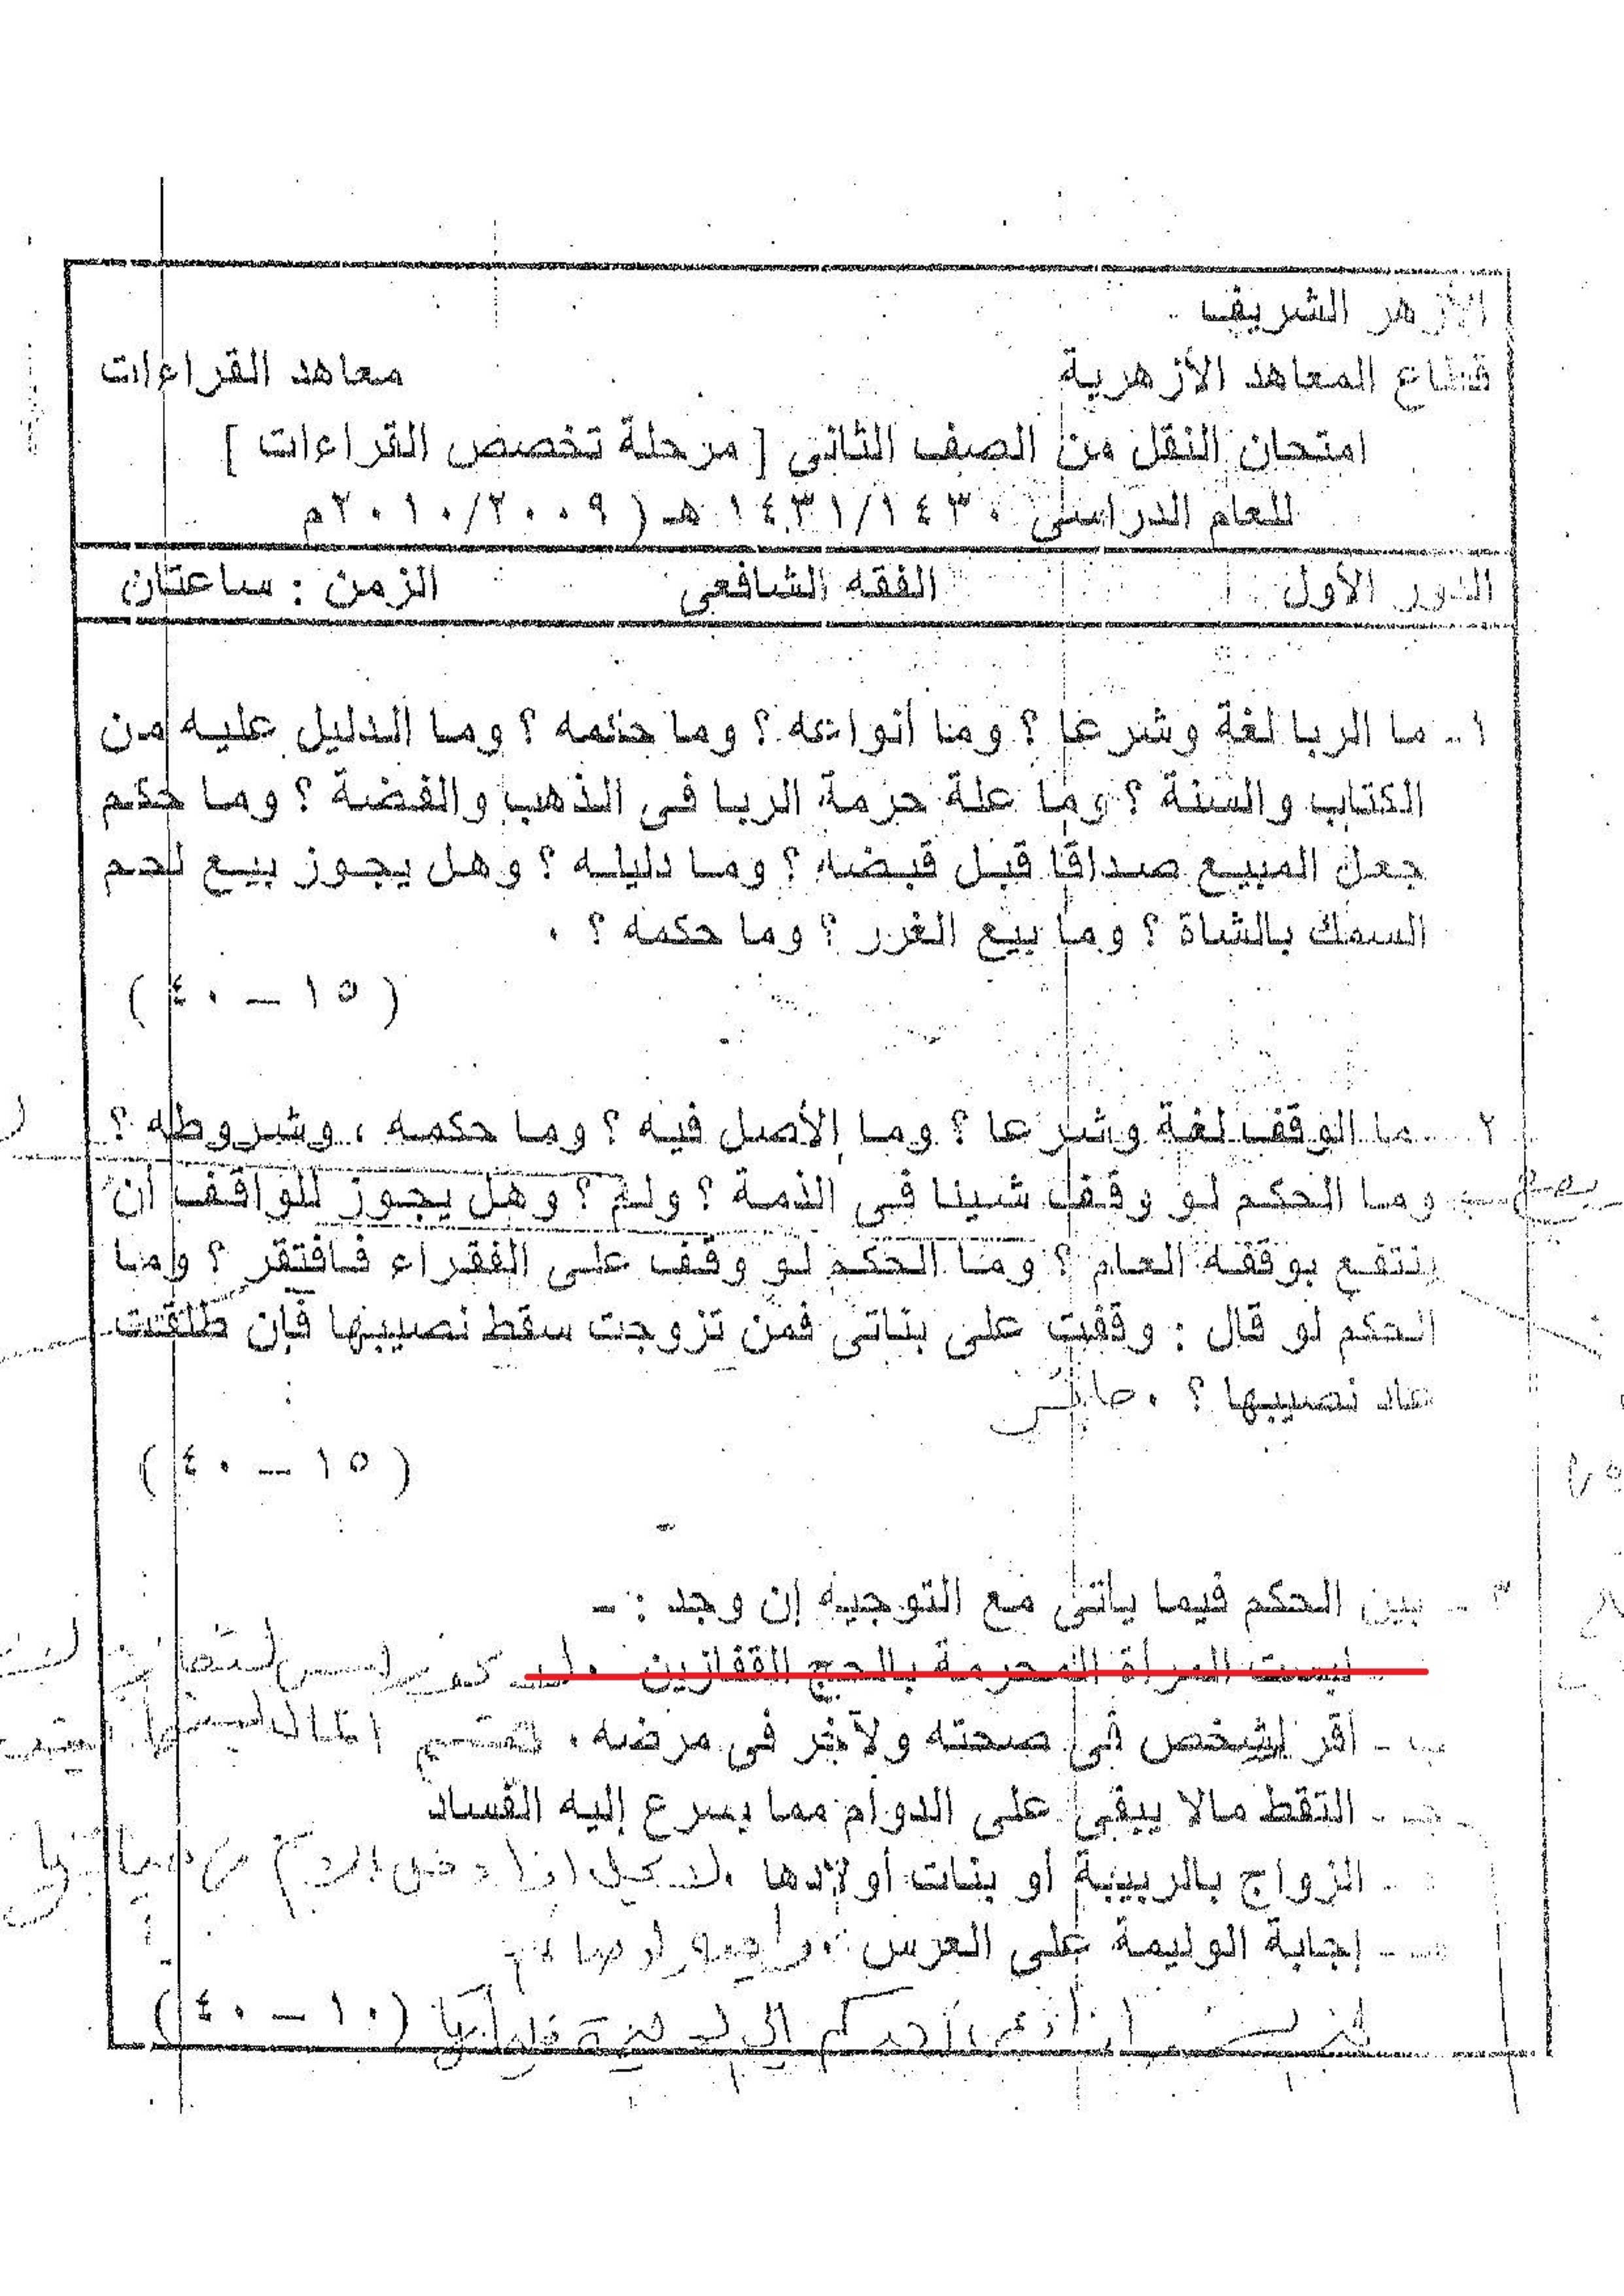 الأزهر الشريف
قطاع المعاهد الأزهرية
معاهد القراءات
امتحان النقل من الصف الثانى [ مرحلة تخصص القراءات ]
للعام الدراسى ١٤٣١/١٤٣٠ هـ ( ٢٠١٠/٢٠٠٩م
الدور الأول
الفقه الشافعى
الزمن : ساعتان
١ - ما الربا لغة وشرعا ؟ وما أنواعه ؟ وما حكمه ؟ وما الدليل عليه من
الكتاب والسنة ؟ وما علة حرمة الربا فى الذهب والفضة ؟ وما حكم
جعل المبيع صداقًا قبل قبضه ؟ وما دليله ؟ وهل يجوز بيع لحم
السمك بالشاة ؟ وما بيع الغرر ؟ وما حكمه ؟ .
( ١٥ – ٤٠ )
٢ - ما الوقف لغة وشرعا ؟ وما الأصل فيه ؟ وما حكمه ، وشروطه ؟
وما الحكم لو وقف شيئا فى الذمة ؟ ولم ؟ وهل يجوز للواقف أن
ينتفع بوقفه العام ؟ وما الحكم لو وقف على الفقراء فافتقر ؟ وما
الحكم لو قال : وقفت على بناتى فمن تزوجت سقط نصيبها فإن طلقت
عاد نصيبها ؟ . جائز
( ١٥ – ٤٠ )
٣ - بين الحكم فيما يأتى مع التوجيه إن وجد : -
لبست المرأة المحرمة بالحج القفازين
ب - أقر لشخص فى صحته ولآخر فى مرضه .
جـ - التقط مالا يبقى على الدوام مما يسرع إليه الفساد
د - الزواج بالربيبة أو بنات أولادها
هـ - إجابة الوليمة على العرس
إذا دعى أحدكم إلى الوليمة فليأتها ( ١٠ – ٤٠ )